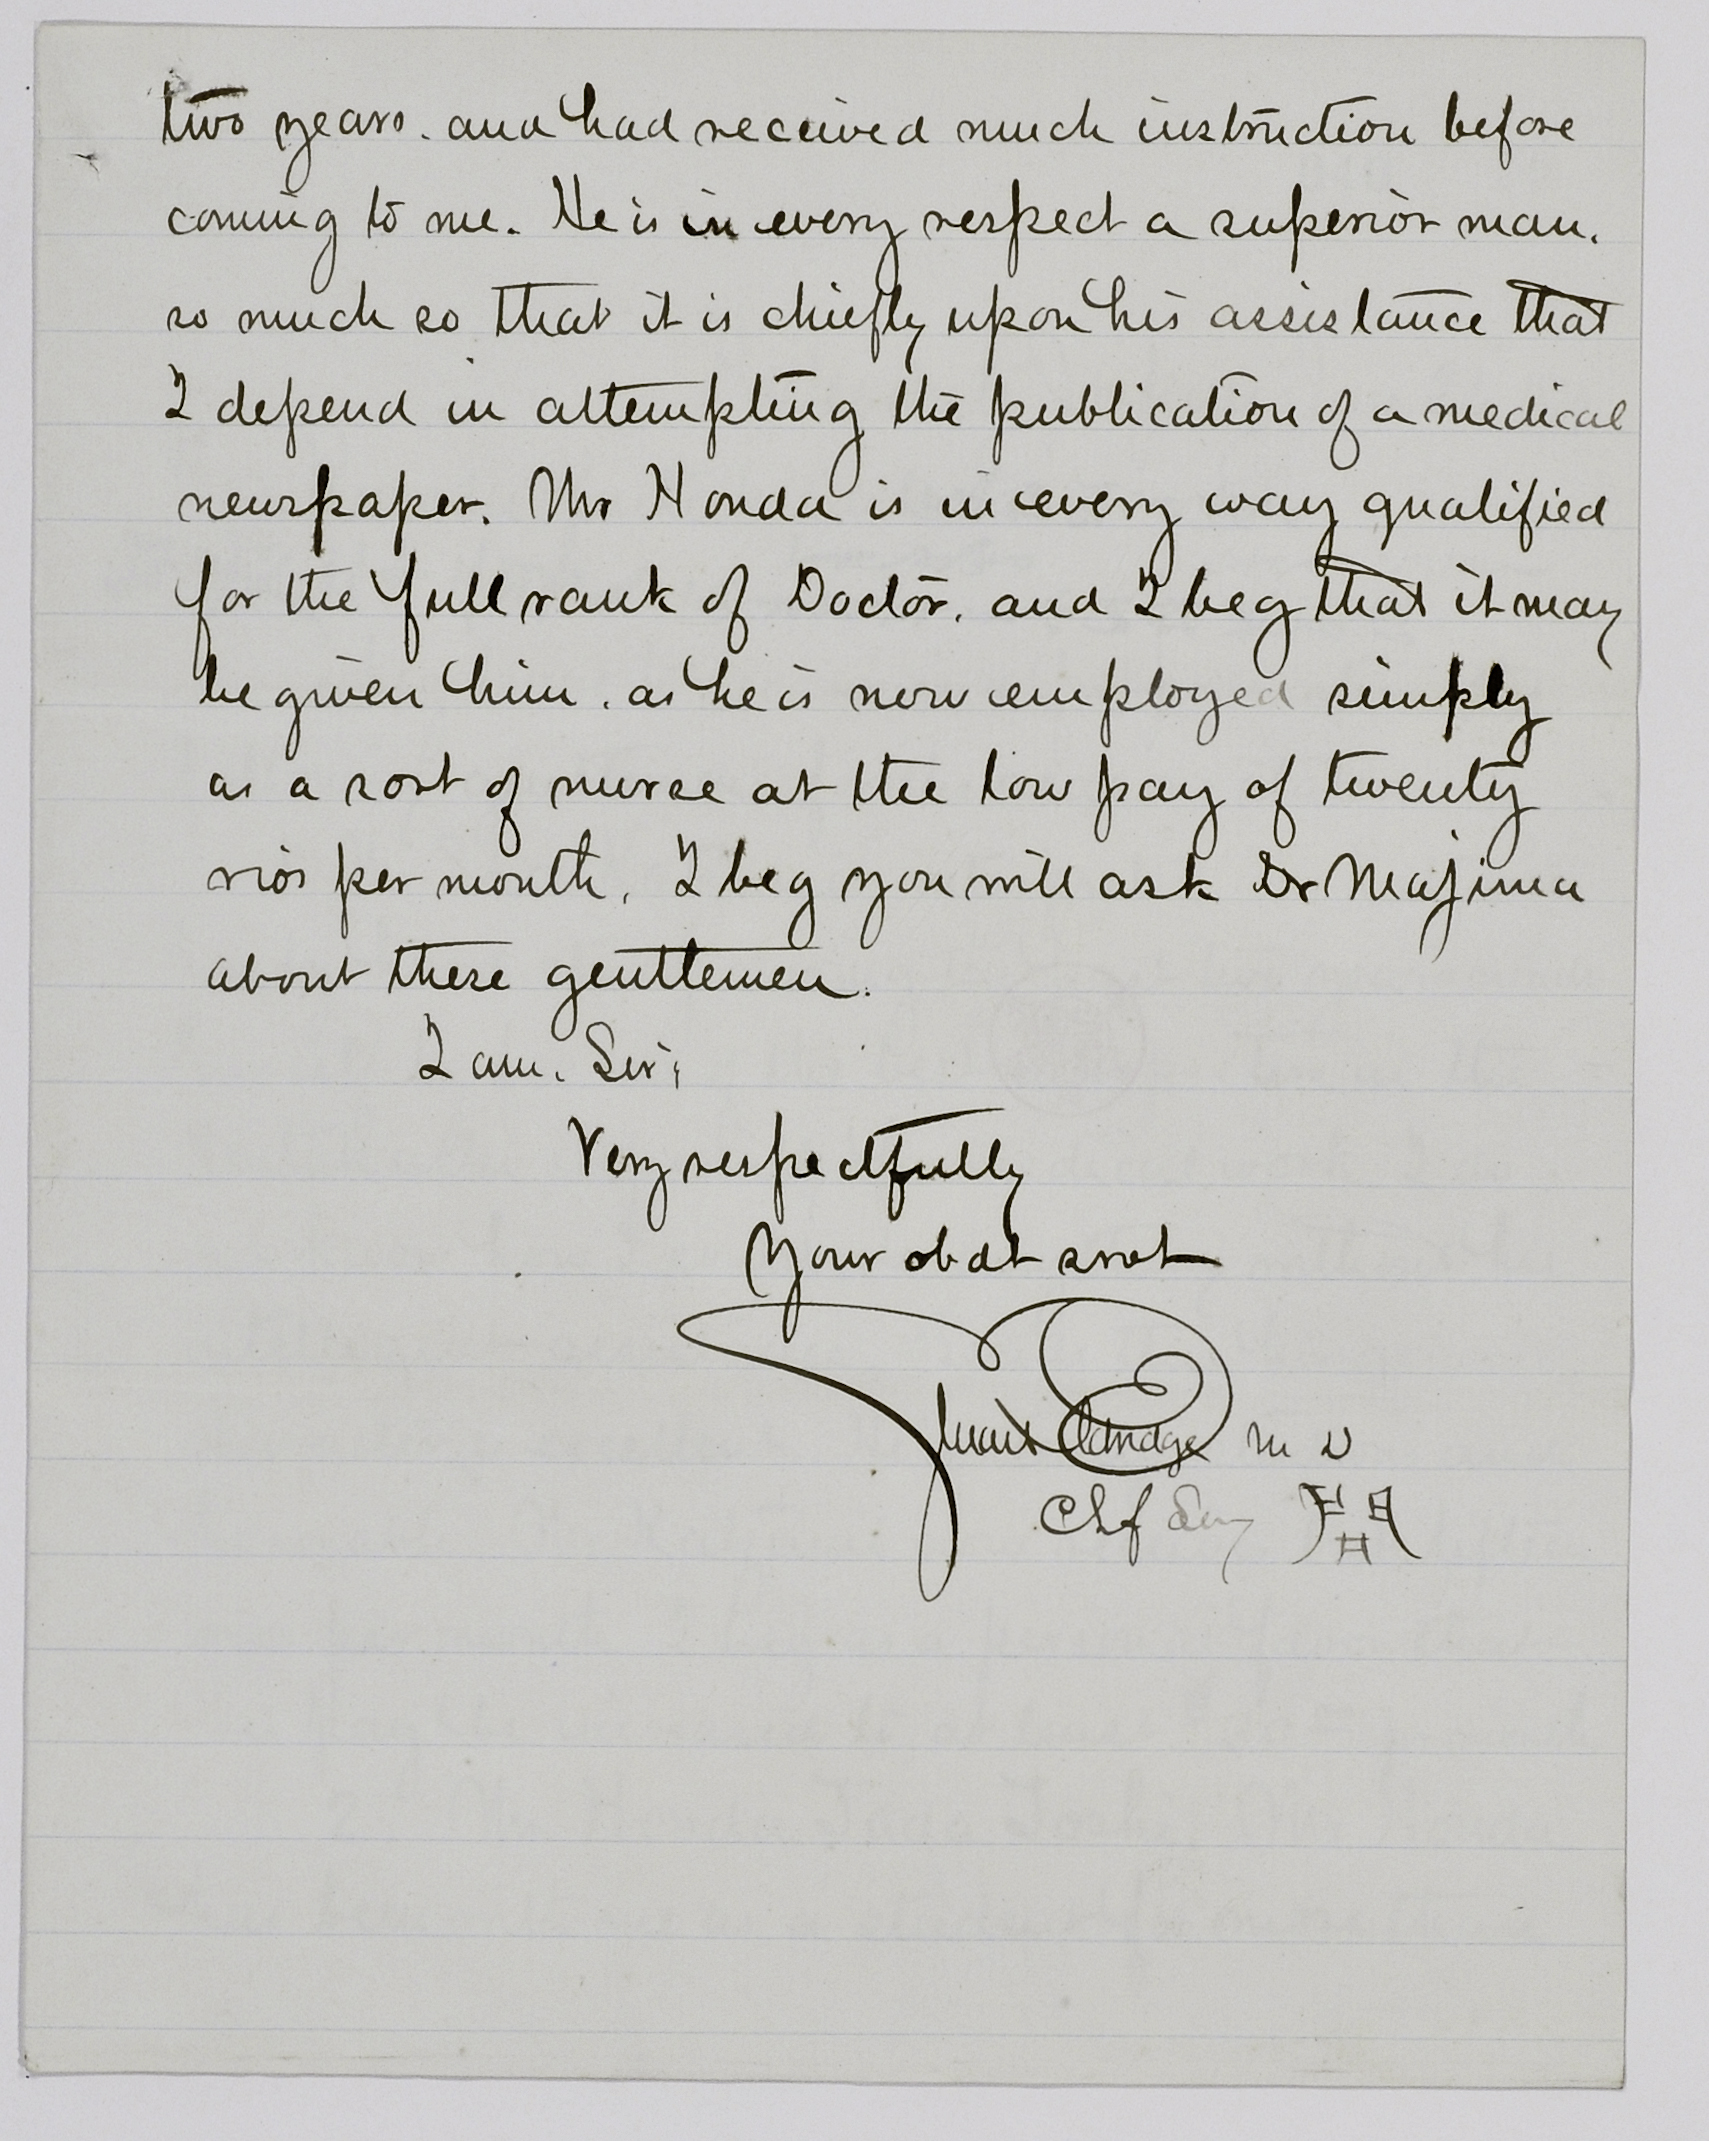 two years. and had received much instruction before
coming to me. He is in every respect a superior man.
so much so that it is chiefly upon his assistance that
I depend in attempting the publication of a medical
newspaper. Mr Honda is in every way qualified
for the full rank of Doctor. and I beg that it may
be given him. as he is now employed simply
as a sort of nurse at the low pay of twenty
rios per month. I beg you will ask Dr Majima
about these gentlemen.
I am. Sir;
Very respectfully
Your obdt srvt
Stuart Eldridge M D
Chf Surg